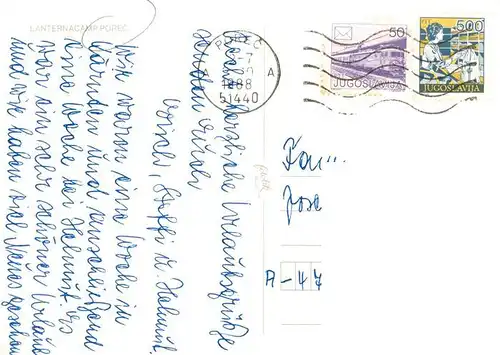 LANTERNACAMP POREČ
POREČ
1988
A
51440
50
JUGOSLAVIJA
500
JUGOSLAVIJA
herzliche Urlaubsgrüße
senden Euch
Steffi u. Helmut.
Wir waren eine Woche in
Kärnten und anschließend
eine Woche bei Helmut. Es
war ein sehr schöner Urlaub
und wir haben viel Neues gesehen
Fam...
Jose
A-47